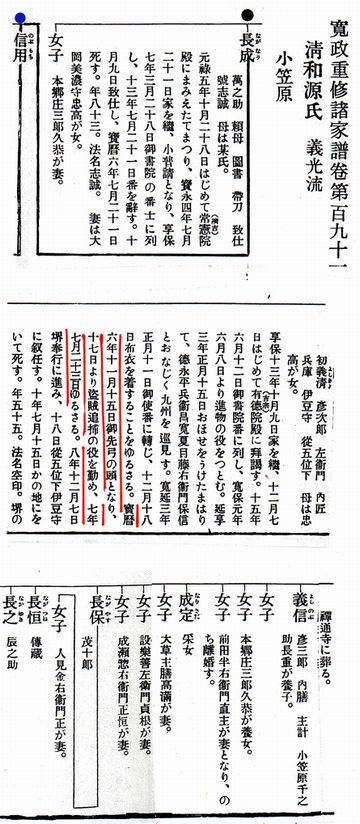 寛政重修諸家譜卷第百九十一
清和源氏 義光流
小笠原
長成
ながなり
萬之助 頼母 圖書 帶刀 致仕
號志誠 母は某氏。
元祿五年十月二十八日はじめて常憲院
(綱吉)
殿にまみえたてまつり、寶永四年七月
二十一日家を繼、小普請となり、享保
七年三月二十八日御書院の番士に列
し、十三年七月二十一日番を辭す。十
月九日致仕し、寶曆六年七月二十一日
死す。年八十三。法名志誠。 妻は大
岡美濃守忠高が女。
女子
本郷庄三郎久恭が妻。
信用
のぶもち
初義清 彦次郎 左衞門 內匠
兵庫 伊豆守 從五位下 母は忠
高が女。
享保十三年十月九日家を繼、十二月七
日はじめて有德院殿に拜謁す。十五年
六月十二日御書院番に列し、寬保元年
六月八日より進物の役をつとむ。延享
三年正月十五日おほせをうけたまはり
て、德永平兵衞昌寬夏目藤右衞門保信
とおなじく九州を巡見す。寬延三年
正月十一日御使番に轉じ、十二月十八
日布衣を着することをゆるさる。寶曆
六年十一月十五日御先弓の頭となり、
十七日より盜賊追捕の役を勤め、七年
七月二十三日ゆるさる。八年十二月七日
堺奉行に進み、十八日從五位下伊豆守
に敍任す。十年七月十五日かの地にを
いて死す。年五十五。法名空印。堺の
禪通寺に葬る。
義信
よしのぶ
彦三郎 內膳 主計 小笠原千之
助長重が養子。
女子
女子
本郷庄三郎久恭が養女。
女子
前田半右衞門直主が妻となり、の
ち離婚す。
成定
なりさだ
采女
女子
大草主膳高滿が妻。
女子
設樂善左衞門貞根が妻。
女子
成瀨惣右衞門正恒が妻。
長保
ながやす
茂十郎
女子
人見金右衞門正が妻。
長恒
ながつね
傳藏
長之
ながゆき
辰之助